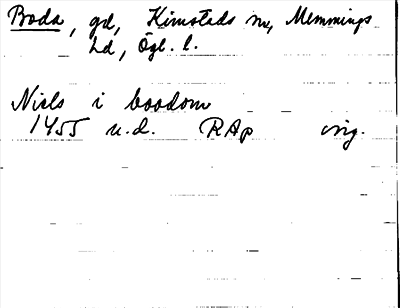 Boda, gd, Kimstads sn, Memmings
hd, Ögl. l.
Niels i boodom
1455 u.d. RAp orig.